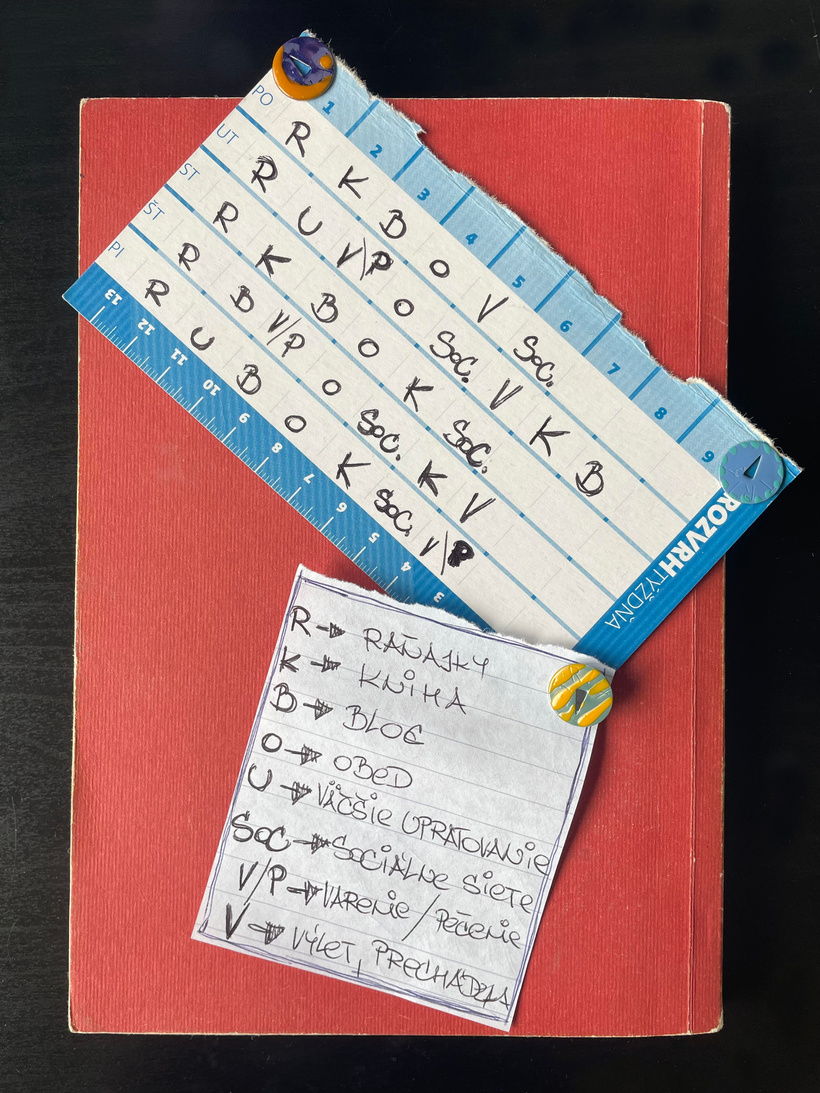 1 2 3 4 5 6 7 8 9
PO R K B O V Soc.
UT R U V/P O Soc. V K B
ST R K B O K Soc.
ŠT R B V/P O Soc. K V
PI R U B O K Soc. V/P
13 12 11 10 9 8 7 6 5 4 3
ROZVRH TÝŽDŇA
R → RAŇAJKY
K → KNIHA
B → BLOG
O → OBED
U → VÄČŠIE UPRATOVANIE
SOC → SOCIÁLNE SIETE
V/P → VARENIE/PEČENIE
V → VÝLET, PRECHÁDZKA